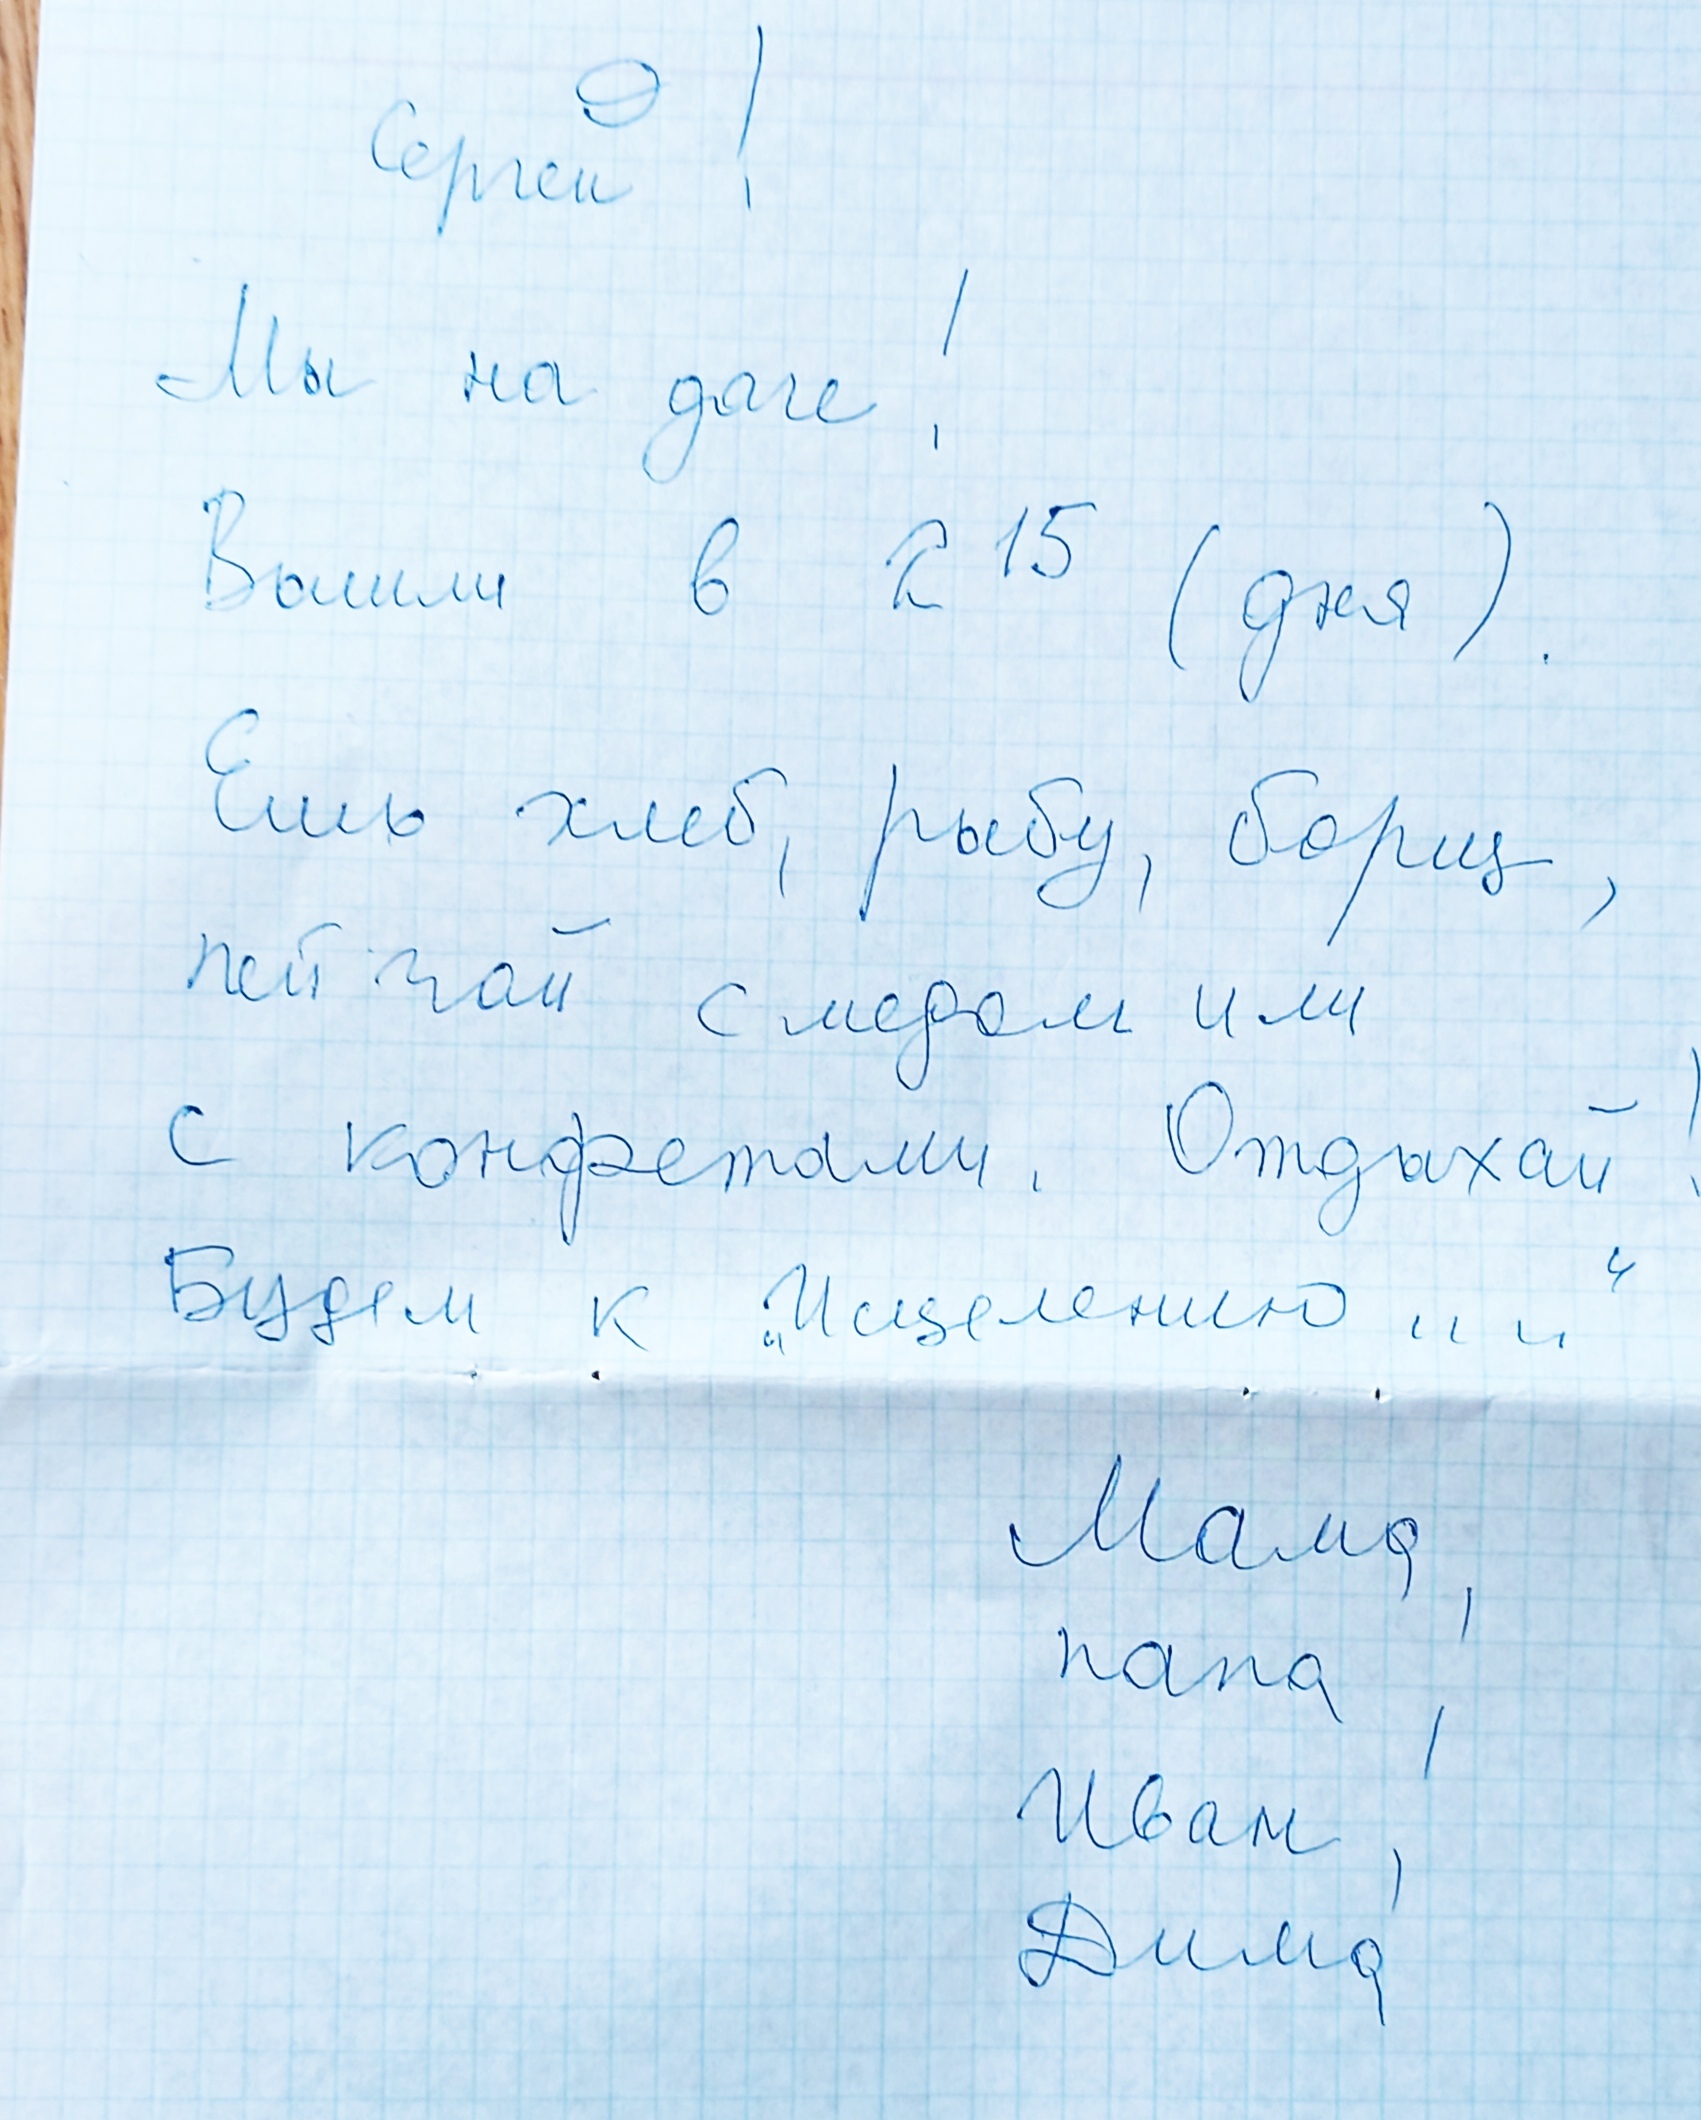 Сергей!
Мы на даче!
Вышли в 2 15 (дня).
Ешь хлеб, рыбу, борщ,
пей чай с медом или
с конфетами. Отдыхай!
Будем к „Исцелению
Мама,
папа,
Иван,
Дима